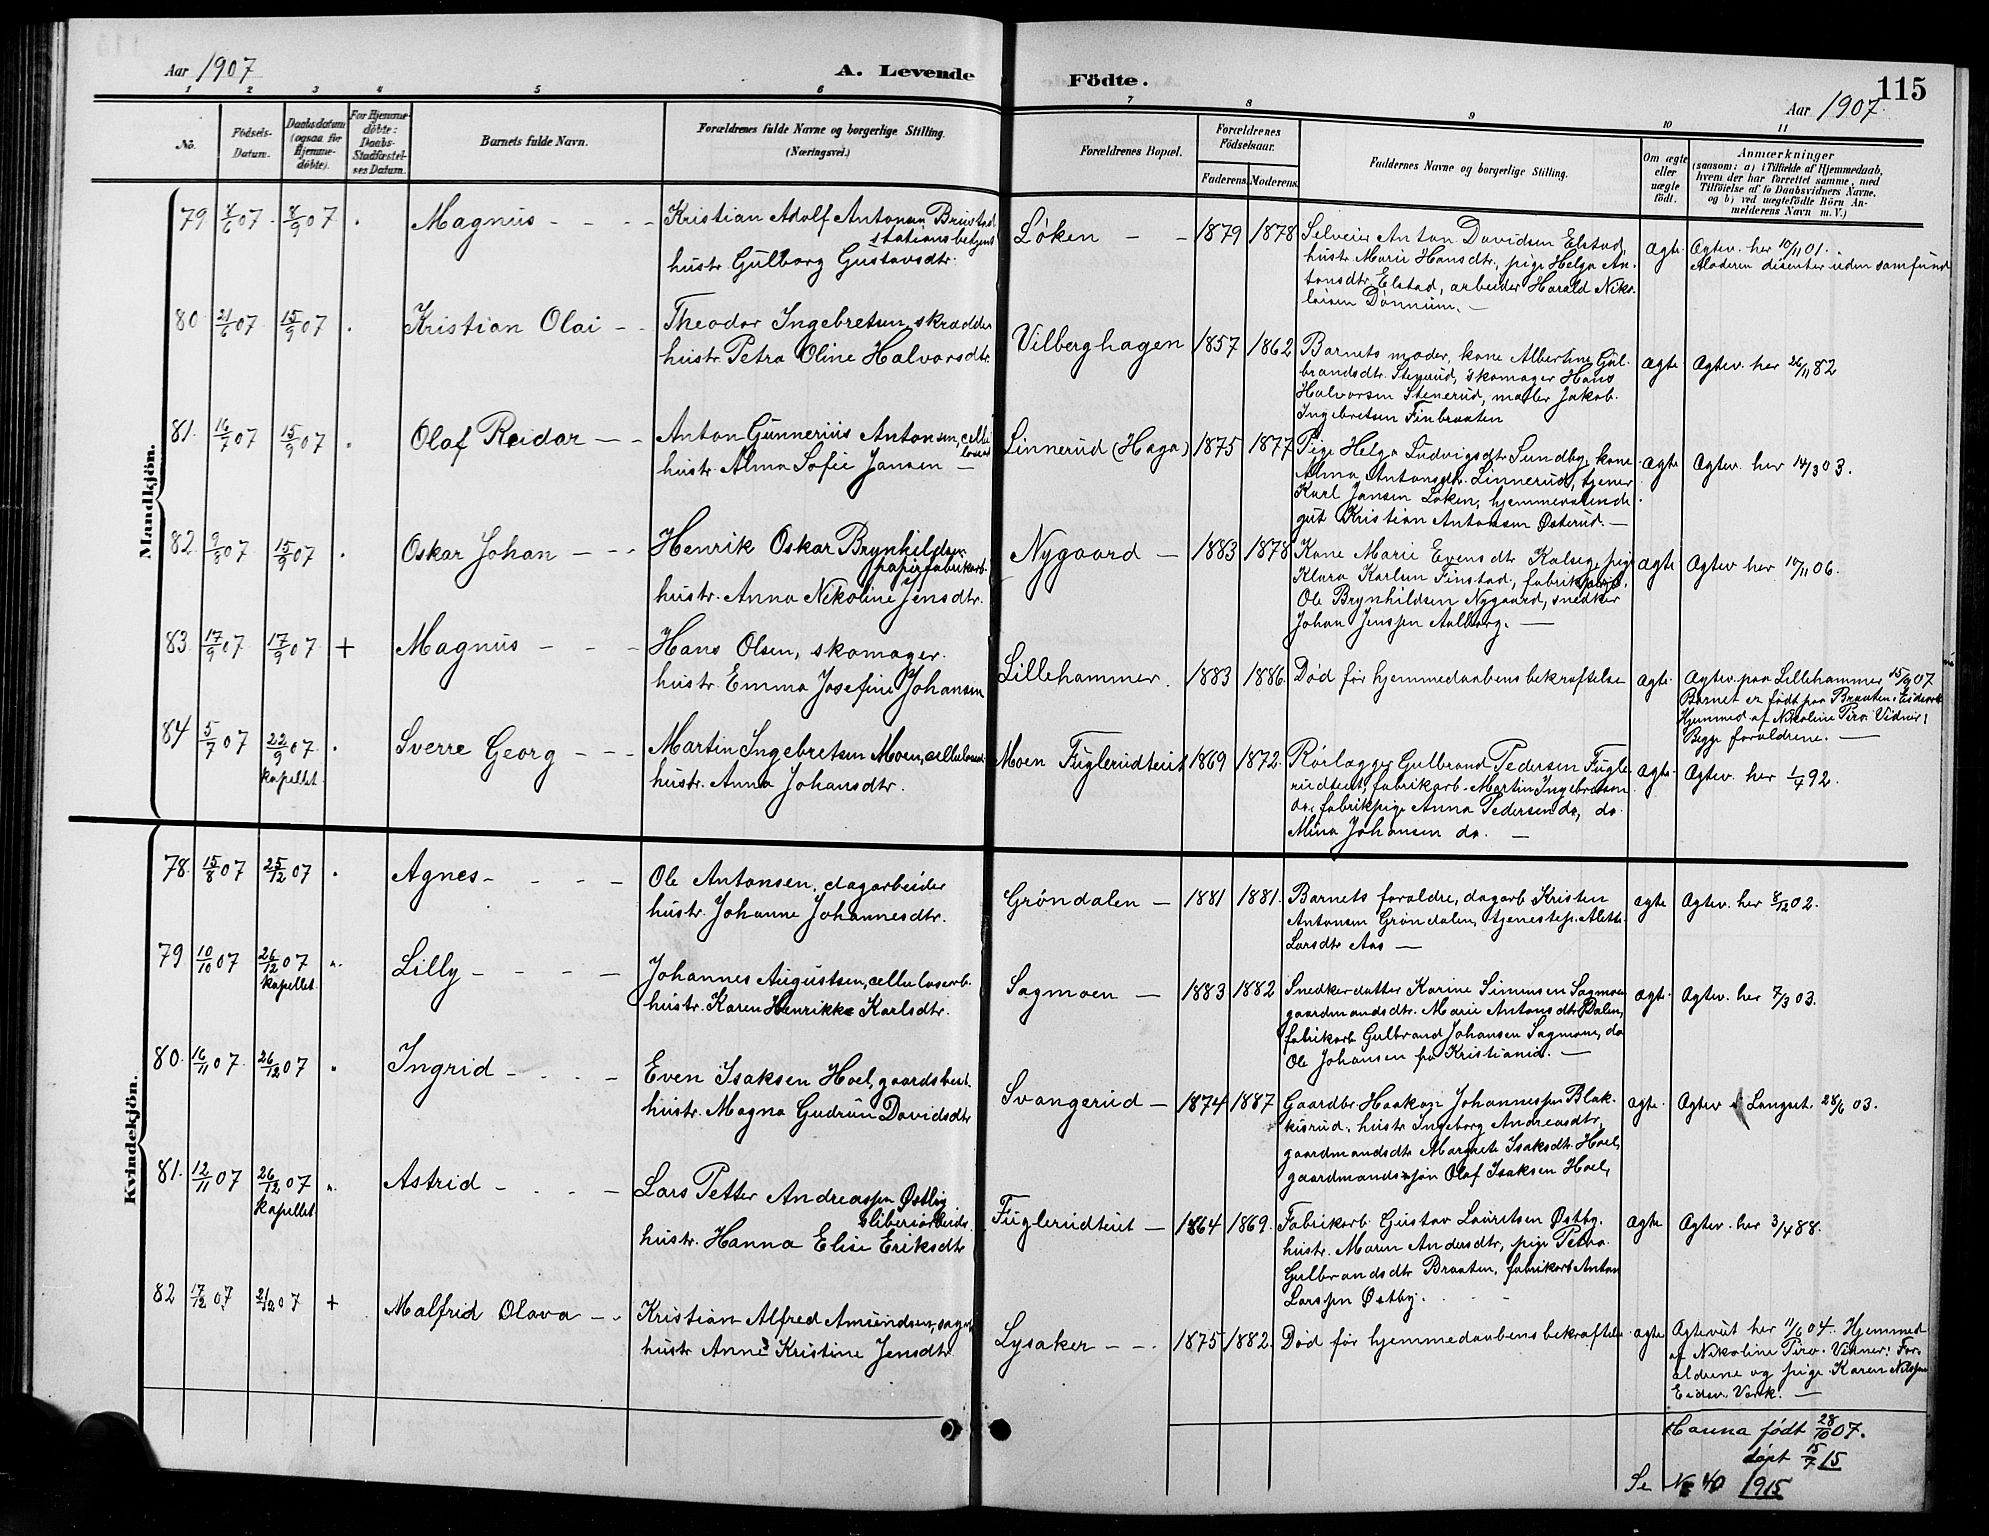 115
Aar 1907
A. Levende Födte.
Aar 1907.
1 2 3 4 5 6 7 8 9 10 11
No.
Födsels-Datum.
Daabsdatum (ogsaa for Hjemmedöbte).
For Hjemmedöbte: Daabs-Stadfæstelses Datum.
Barnets fulde Navn.
Forældrenes fulde Navne og borgerlige Stilling. (Næringsvei.)
Forældrenes Bopæl.
Forældrenes Födselsaar.
Faderens. Moderens.
Faddernes Navne og borgerlige Stilling.
Om ægte eller uægte födt.
Anmærkninger
(saasom: a) i Tilfælde af Hjemmedaab,
hvem der har forrettet samme, med
Tilföielse af to Daabsvidners Navne.
og b) ved uægtefödte Börn An-
melderens Navn m. V.)
Mandkjön.
79 4/6 07 8/9 07 Magnus
Kristian Adolf Antonsen
stationsbetjent
hustr. Gulborg Gustavsdtr.
Løken 1879 1878
Anton Davidsen Elstad,
hustr. Marie Hansdtr., pige Helga An-
tonsdtr. Elstad, arbeider Harald Niko-
laisen Dønnum.
ægte Ægtev. her 10/11 01.
Moderen disenter uden samfund
80 21/6 07 15/9 07 Kristian Olai
Theodor Ingebretsen, skrædder
hustr. Petra Oline Halvorsdtr.
Vilberghagen 1857 1862
Barnets moder, kone Albertine Gul-
brandsdtr. Stenerud, skomager Hans
Halvorsen Stenerud, maler Jakob
Ingebretsen Finbraaten
ægte Ægtev. her 26/11 82
81. 16/7 07 15/9 07 Olaf Reidar
Anton Gunnerius Antonsen,
hustr. Alma Sofie Jansen
Linnerud (Haga) 1875 1877
Pige Helga Ludvigsdtr Sundby, kone
Alma Antonsdtr. Linnerud, tjener
Karl Jansen Løken, hjemmeværende
gut Kristian Antonsen Østerud.
ægte Ægtev. her 14/3 03.
82. 9/8 07 15/9 07 Oskar Johan
Henrik Oskar Brynhildsen
papirfabrikarb.
hustr. Anna Nikoline Jensdtr.
Nygaard 1883 1878
Kone Marie Evensdtr Kalseg, pige
Klara Karlsen Finstad, fabrikarb.
Ole Brynhildsen Nygaard, snedker
Johan Jenssen Aalborg.
ægte Ægtev her 10/11 06.
83. 17/9 07 17/9 07 + Magnus
Hans Olsen, skomager.
hustr. Emma Josefine Johansen
Lillehammer. 1883 1886.
Død før hjemmedaabens bekræftelse
ægte Ægtev. paa Lillehammer 15/9 07
Barnet er født paa Braaten, Eidsvold
Hjemmed af Nikoline Piro. Vidner:
Begge forældrene.
84 5/7 07 22/9 07 kapellet Sverre Georg
Martin Ingebretsen Moen,
hustr. Anna Johansdtr.
Moen Fuglerudteiet 1869 1872.
Rørlægger Gulbrand Pedersen Fugle-
rudteiet, fabrikarb. Martin Ingebretsen
do., fabrikpige Anna Pedersen do, do
Mina Johansen do.
ægte Ægtev. her 1/4 92.
Kvindekjön.
78. 15/8 07 25/12 07 Agnes
Ole Antonsen, dagarbeider
hustr. Johanne Johannesdtr.
Grøndalen 1881 1881.
Barnets forældre, dagarb Kristen
Antonsen Grøndalen, tjenestep. Alette
Larsdtr Aas
ægte Ægtev. her 8/12 02.
79 10/10 07 26/12 07 kapellet Lilly
Johannes Augustsen, cellulosearb.
hustr. Karen Henrikke Karlsdtr.
Sagmoen 1883 1882
Snedkerdatter Karine Simensen Sagmoen
gaardmandsdtr. Marie Antonsdtr Dalen,
fabrikarb Gulbrand Johansen Sagmoen, do
Ole Johansen fra Kristiania.
ægte. Ægtev. her 7/3 03.
80. 16/11 07 26/12 07 Ingrid
Even Isaksen Hoel, gaardsbest.
hustr. Magna Gudrun Davidsdtr
Svangerud 1874 1887
Gaardbr Haakon Johannessen Blak-
kisrud, hustr Ingeborg Andreasdtr,
gaardmandsdtr Margrete Isaksdtr. Hoel,
gaardmandssøn Olaf Isaksen Hoel,
ægte. Ægtev i Langset. 28/6 03.
81. 12/11 07 26/12 07 kapellet Astrid
Lars Petter Andreassen Østby
sliberiarbeider
hustr. Hanna Elise Eriksdtr
Fuglerudteiet 1864 1869.
Fabrikarb Gustav Lauritsen Østby.
hustr. Maren Andersdtr, pige Petra
Gulbrandsdtr Braaten, fabrikarb Anton
Larssen Østby.
ægte Ægtev. her 3/4 88.
82 17/12 07. 21/12 07 + Malfrid Olava
Kristian Alfred Amundsen,
hustr Anne Kristine Jensdtr.
Lysaker 1875 1882.
Død før hjemmedaabens bekræftelse
ægte Ægteviet her 11/6 04. Hjemmed
af Nikoline Piro. Vidner: For-
ældrene og pige Karen Nilssen
Eidsv. Værk.
Hanna født 28/10 07.
døpt 15/7 15
Se No 40 1915